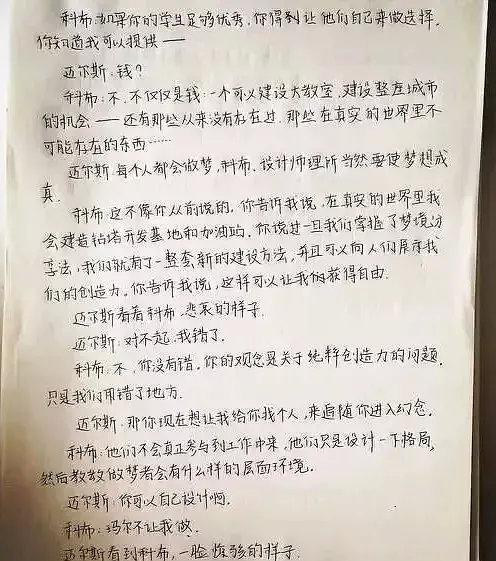 科布:如果你的学生足够优秀,你得到让他们自己来做选择,
你知道我可以提供——
迈尔斯:钱?
科布:不,不仅仅是钱:一个可以建设大教室,建设整座城市
的机会——还有那些从来没有存在过,那些在真实的世界里不
可能存在的东西……
迈尔斯:每个人都会做梦,科布.设计师理所当然要使梦想成
真.
科布:这不像你从前说的,你告诉我说,在真实的世界里我
会建造钻塔开发基地和加油站.你说过一旦我们掌握了梦境分
享法,我们就有了一整套新的建设方法,并且可以向人们展示我
们的创造力.你告诉我说,这样可以让我们获得自由.
迈尔斯看着科布,悲哀的样子.
迈尔斯:对不起,我错了.
科布:不,你没有错,你的观念是关于纯粹创造力的问题.
只是我们用错了地方.
迈尔斯:那你现在想让我给你找个人,来追随你进入幻念.
科布:他们不会真正参与到工作中来,他们只是设计一下格局,
然后教教做梦者会有什么样的层面环境.
迈尔斯:你可以自己设计啊.
科布:玛尔不让我做.
迈尔斯看到科布,一脸惊骇的样子.